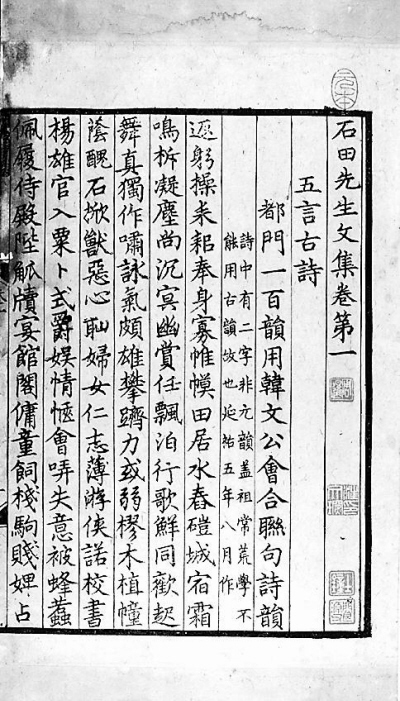 石田先生文集卷第一
五言古詩
都門一百韻用韓文公會合聯句詩韻
詩中有二字非元韻蓋祖常荒學不
能用古韻故也延祐五年八月作
躬操耒耜奉身寡帷幙田居水舂磑城宿霜
鳴柝凝塵尚沉冥幽賞任飄泊行歌鮮同歡起
舞真獨作嘯詠氣頗雄攀躋力或弱樛木植幢
蔭醜石掀獸惡心恥婦女仁志薄游俠諾校書
楊雄官入粟卜式爵娛情愜會哢失意被蜂蠆
佩履侍殿陛觚牘宴館閣傭童飼棧駒賤婢占